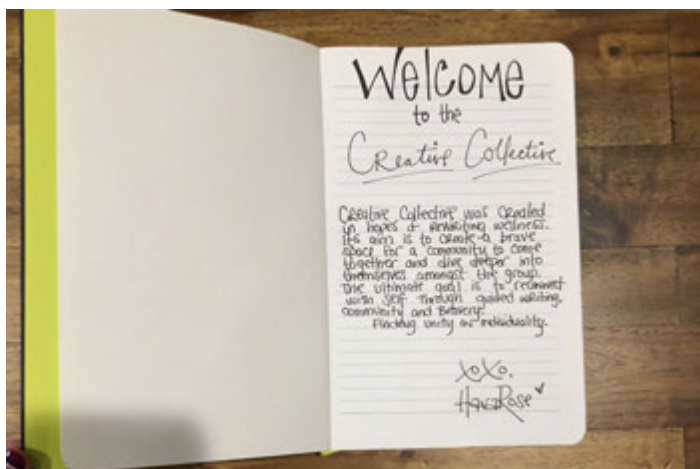 WELCOME
to the
Creative Collective
Creative Collective was created
in hopes of rewriting wellness.
Its aim is to create a brave
space for a community to come
together and dive deeper into
themselves amongst the group.
The ultimate goal is to reconnect
with self through guided writing,
community and
Finding unity in individuality.
XOXO,
HavaRose